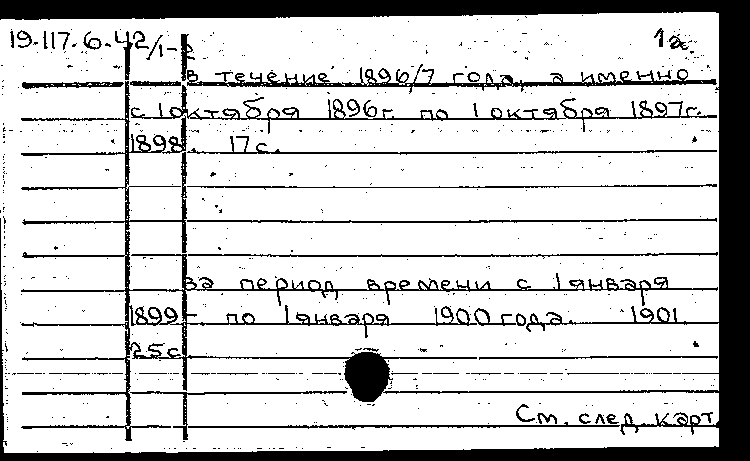 19.117.6.42/1-2 1а.
в течение 1896/7 года, а именно
с 1 октября 1896г. по 1 октября 1897г.
1898. 17с.
за период времени с 1 января
1899г. по 1 января 1900 года. 1901.
25с
См. след. карт.